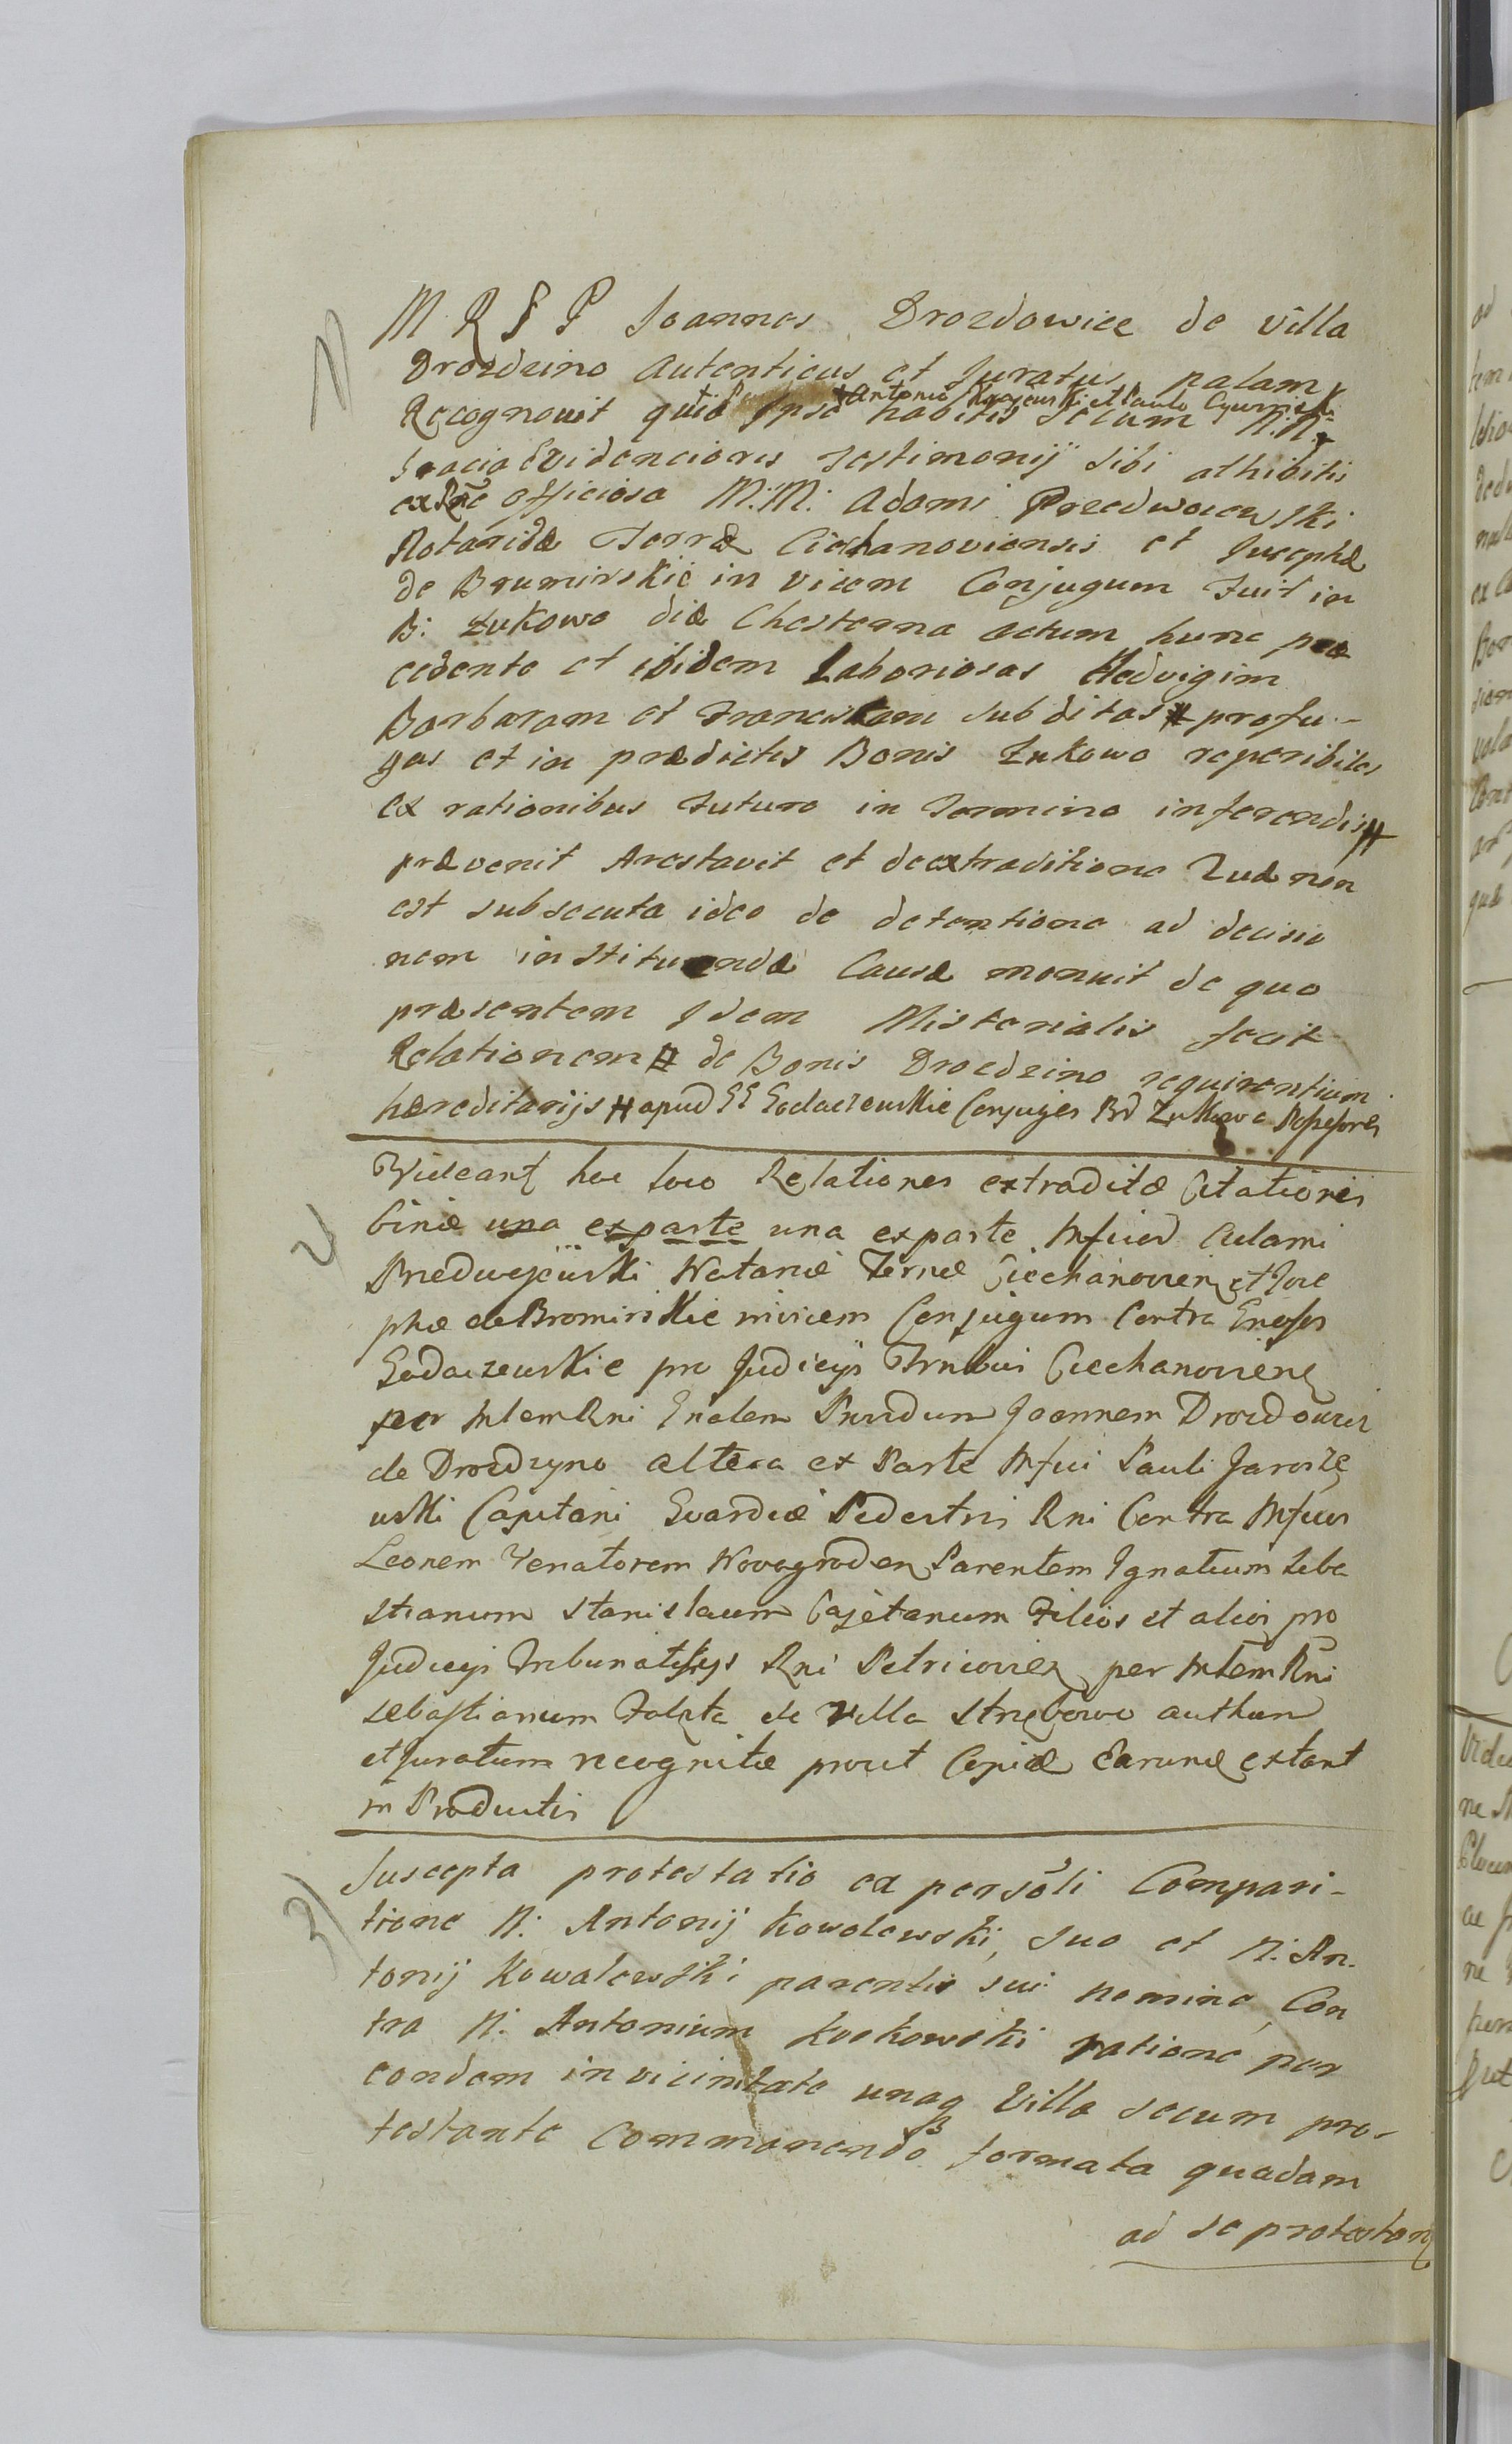 1)
M R S P Joannes Drozdowicz de villa
Drozdzino Autenticus et Juratus palam
Recognovit quia Ipse habitis secum N.N.
+ Antonio Krajewski et Paulo
gracia Evidencioris Testimonij sibi adhibitis
ex Rne officiosa M: M: Adami Przedwoiewski
Notarida Terræ Ciechanoviensis et Jusephæ
de Brumirskie in vicem Conjugum Fuit in
B: Zukowo die Chesterna actum hunc præ
cedente et ibidem Laboriosas Hedvigim
Barbaram et Franciskam subditas # profu-
gas et in prædictis Bonis Zukowo reperibiles
ex rationibus Futuro in Termino inferendis #
prævenit Arestavit et de extraditione Quæ non
est subsecuta ideo de detentione ad decisio
nem instituendæ Causæ monuit de quo
præsentem Idem Misterialis fecit
Relationem # de Bonis Drozdzino requirentium
hæreditarijs # apud GG Godaczewskie Conjuges Bd Zukowo Possesores
2)
Videant hoc loco Relationes extraditæ Citationis
binæ una ex parte una ex parte Mficor Adami
Przedwojewski Notarié Terræ Ciechanovien et Jose
phæ de Bromirskie invicem Conjugum Contra Gnosos
Godaczewskie pro Judicijs Trnlbus Ciechanovien
per Mtem Rni Gnalem Prvidum Joannem Drozdowicz
de Drozdzyno altera ex Parte Mfici Pauli Jarosze
wski Capitani Gvardiæ Pedestris Rni Contra Mficos
Leonem Venatorem Novogroden Parentem Ignatium Seba
stianum Stanislaum Cajetanum Filios et alios pro
Judicijs Tribunalitijs Rni Petricovien per Mtem Rni
Sebastianum Falęta de Villa Strzebowo authen
et Juratum recognitæ prout Copiæ Earund extant
in Productis
3)
Suscepta protestatio ex persoli Compari-
tione N: Antonij Kowalewski, suo et N: An-
tonij Kowalewski parentis sui nomine, Con
tra N: Antonium Koskowski ratione per
eondem in vicinitate unaq Villa secum pro-
testante Commanendo formata quadam
ad se protestan